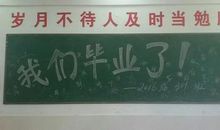 岁月不待人及时当勉
我们毕业了！